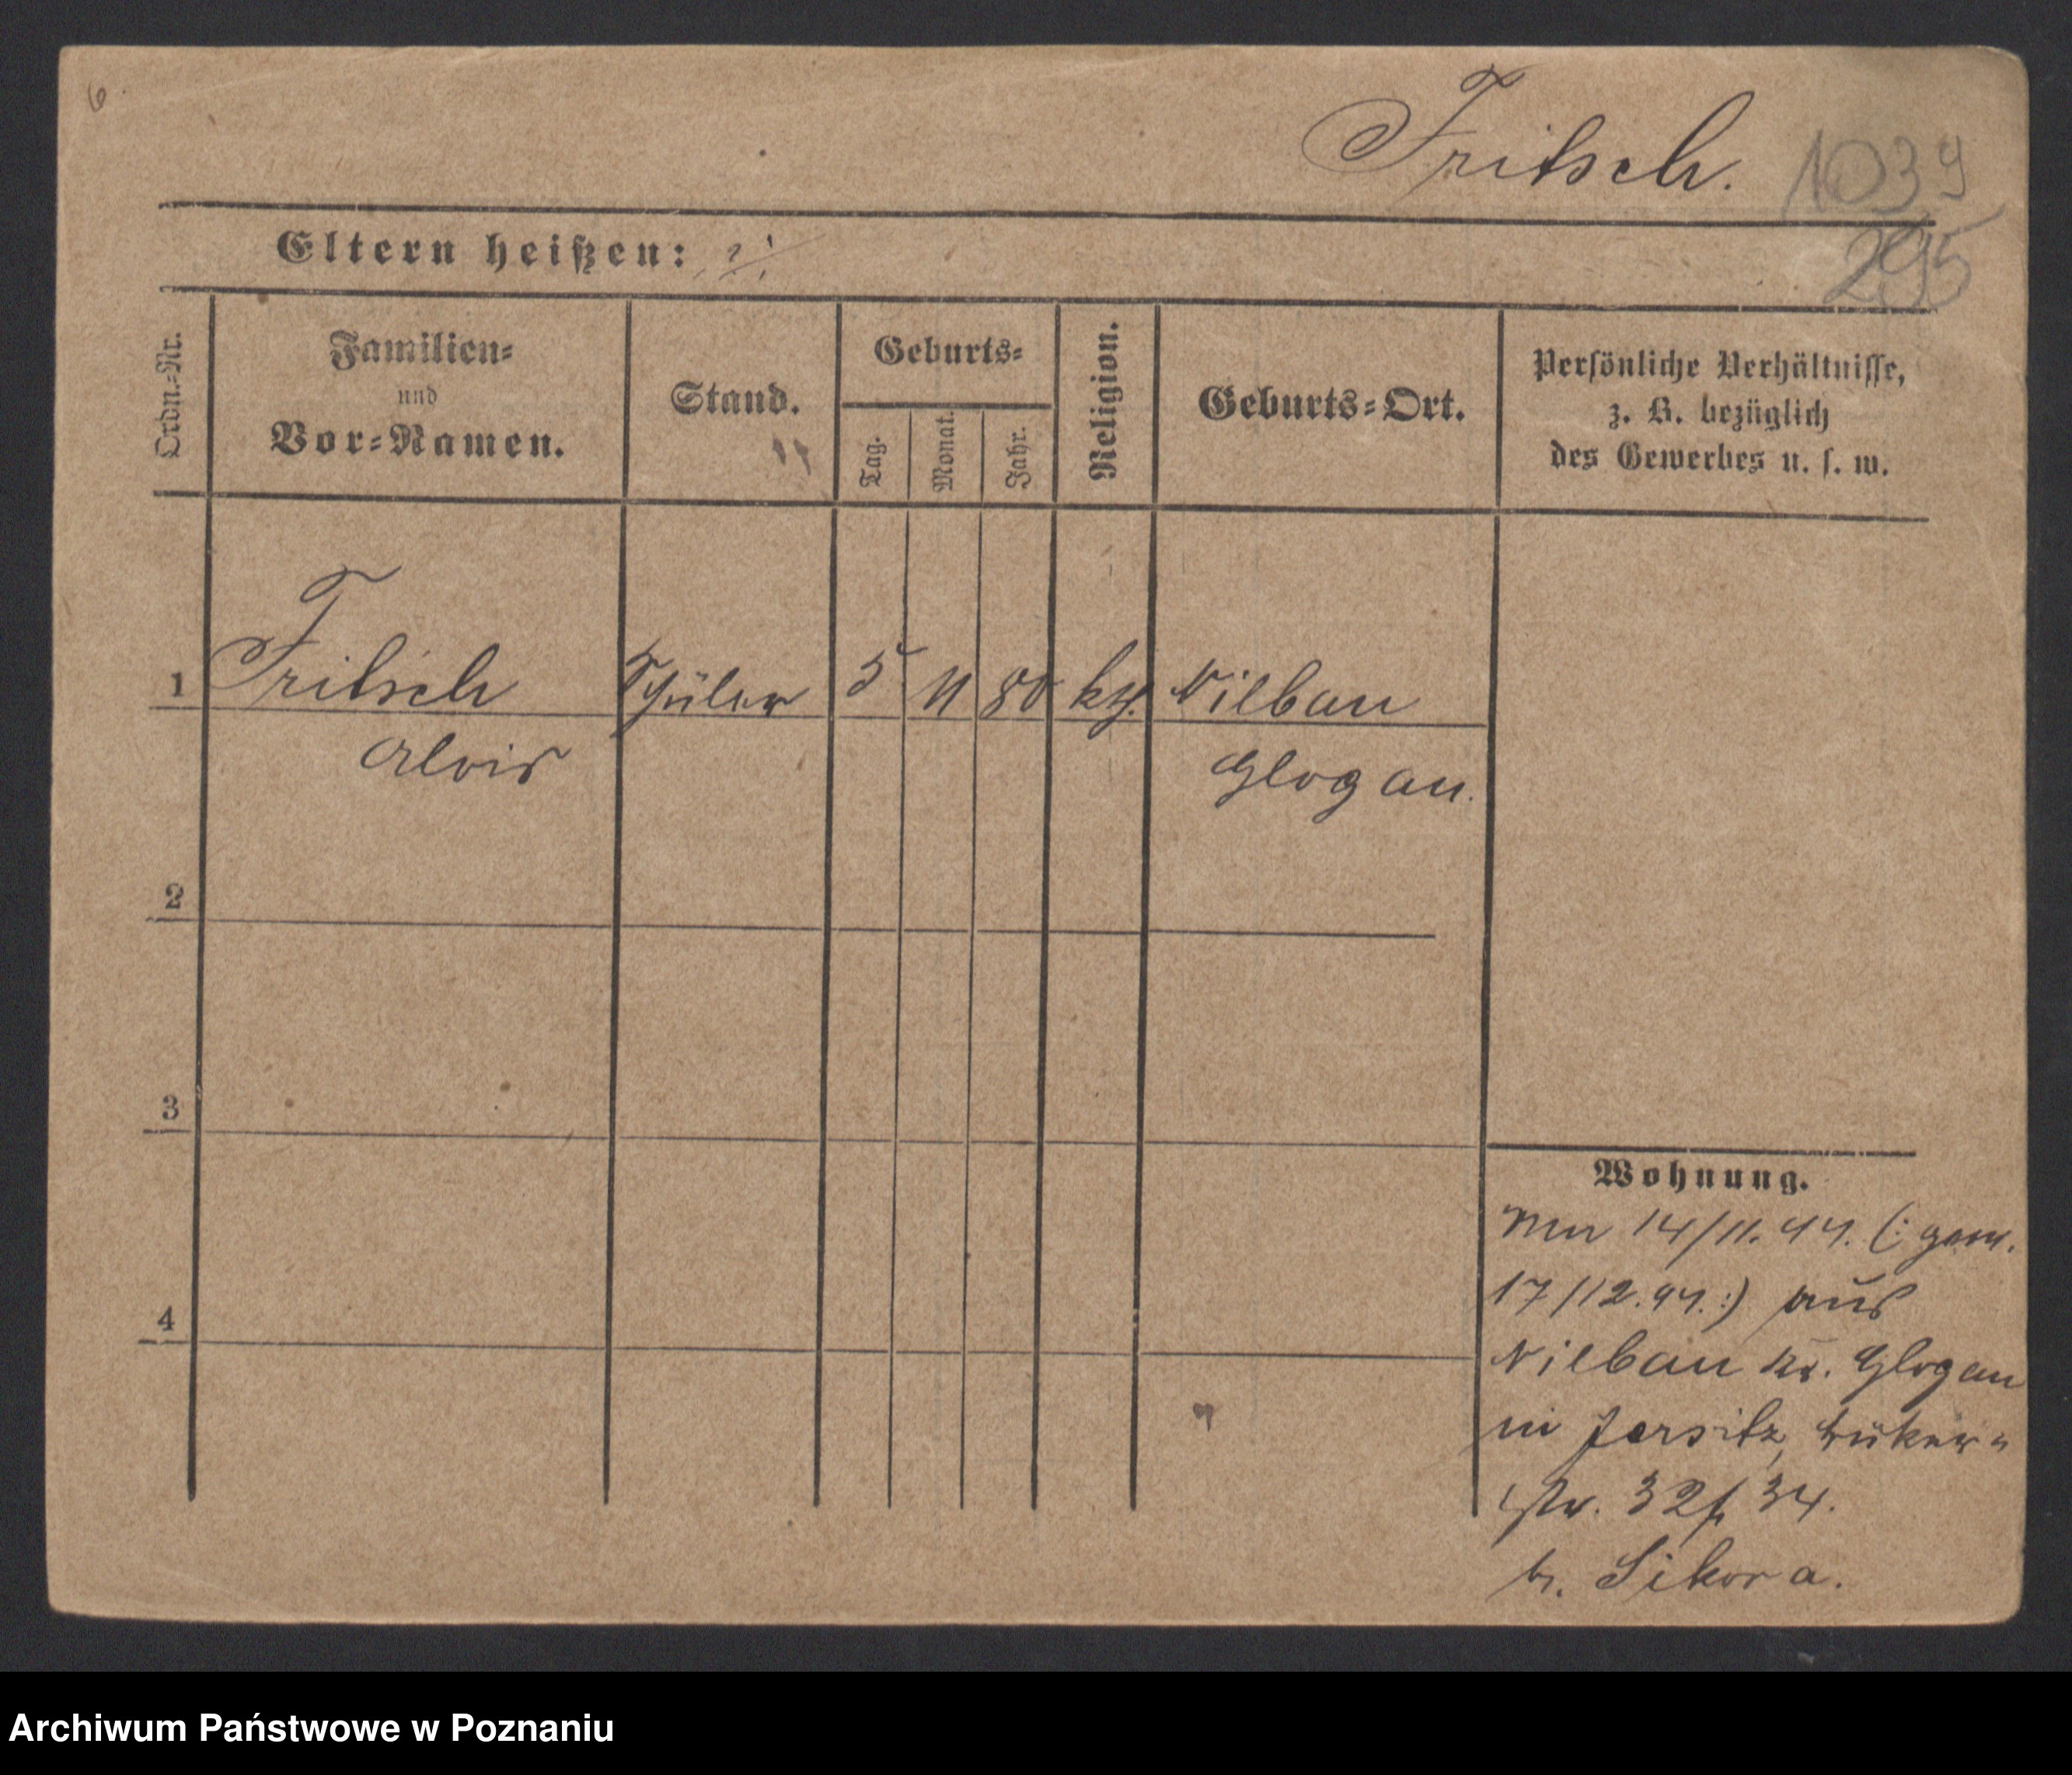 6
Fritsch.
1039
295
Eltern heißen:
Ordn.=Nr.
Familien=
und
Vor=Namen.
Stand.
Geburts=
Tag.
Monat.
Jahr.
Religion.
Geburts=Ort.
Persönliche Verhältnisse,
z. B. bezüglich
des Gewerbes u. s. w.
1 Fritsch Schüler 5 11 80 kth. Nilbau
Alois Glogau.
2
3
4
Wohnung.
14/11. 94. (: gem.
17/12. 94. :) aus
Nilbau Kr. Glogau
in Jersitz,
str. 32/34.
b. Sikora.
Archiwum Państwowe w Poznaniu